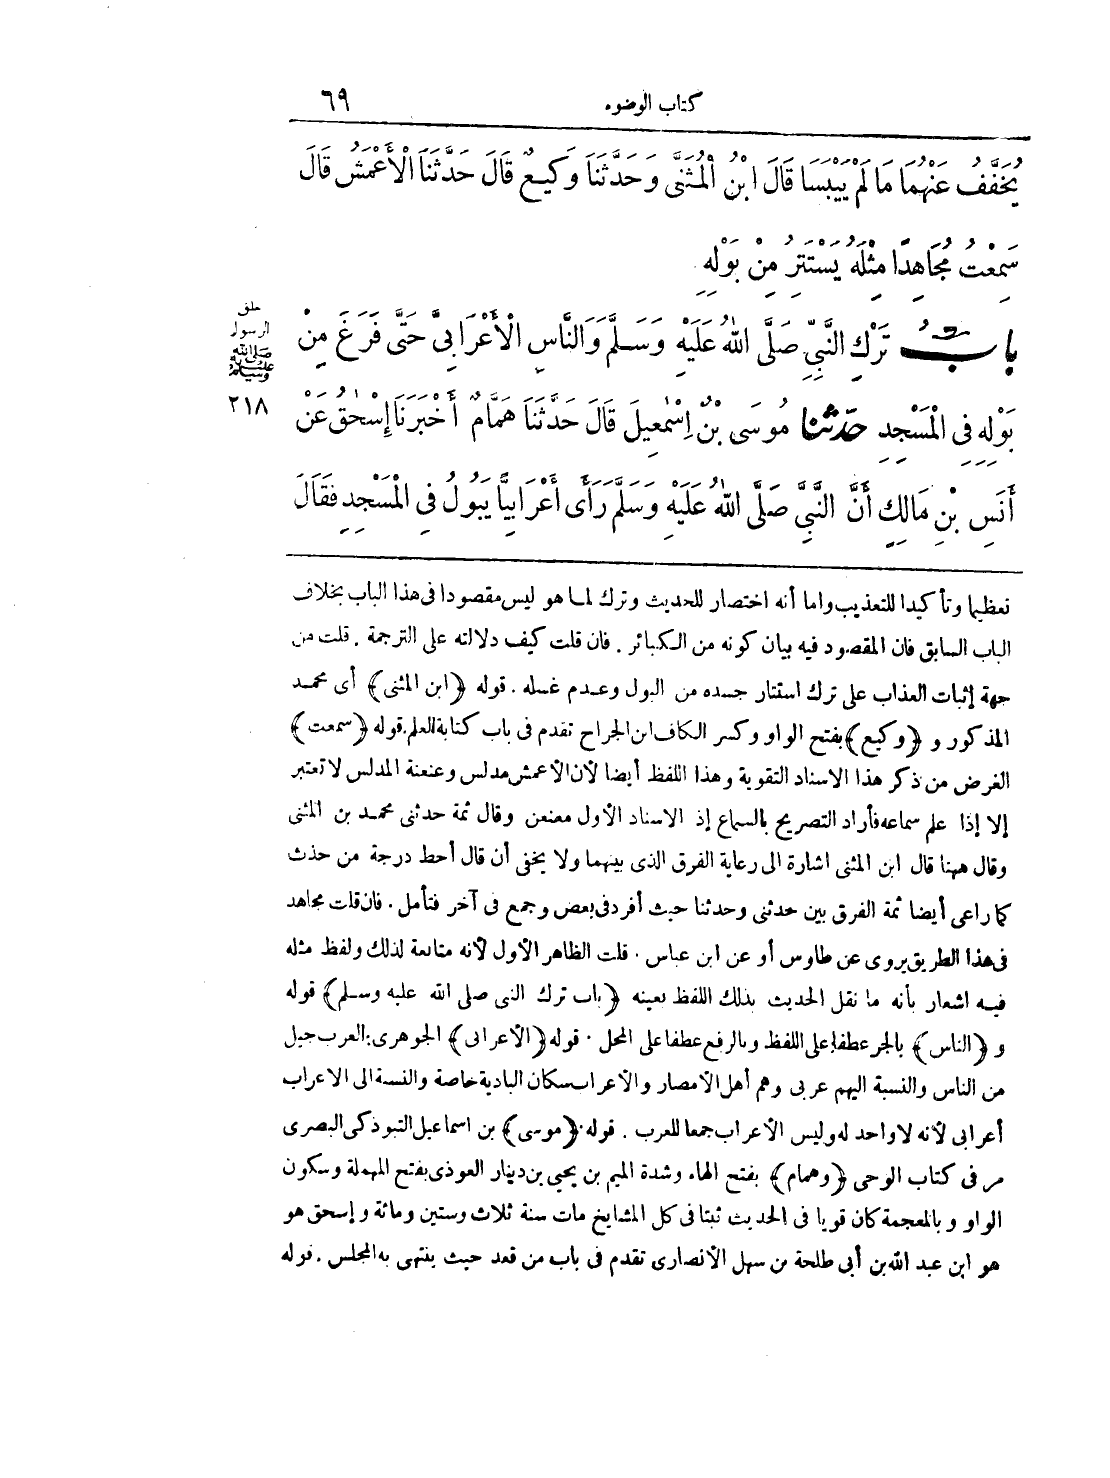 كتاب الوضوء ٦٩
يُخَفَّفُ عَنْهُمَا مَا لَمْ يَيْبَسَا قَالَ ابْنُ الْمُثَنَّى وَحَدَّثَنَا وَكِيعٌ قَالَ حَدَّثَنَا الْأَعْمَشُ قَالَ
سَمِعْتُ مُجَاهِدًا مِثْلَهُ يَسْتَتِرُ مِنْ بَوْلِهِ
بابُ تَرْكِ النَّبِيِّ صَلَّى اللهُ عَلَيْهِ وَسَلَّمَ وَالنَّاسِ الْأَعْرَابِيَّ حَتَّى فَرَغَ مِنْ
بَوْلِهِ فِي الْمَسْجِدِ حَدَّثَنَا مُوسَى بْنُ إِسْمٰعِيلَ قَالَ حَدَّثَنَا هَمَّامٌ أَخْبَرَنَا إِسْحٰقُ عَنْ
أَنَسِ بْنِ مَالِكٍ أَنَّ النَّبِيَّ صَلَّى اللهُ عَلَيْهِ وَسَلَّمَ رَأَى أَعْرَابِيًّا يَبُولُ فِي الْمَسْجِدِ فَقَالَ
خلق
الرسول
صلى الله عليه وسلم
٢١٨
تعظيما وتأكيدا للتعذيب واما أنه اختصار للحديث وترك لما هو ليس مقصودا فى هذا الباب بخلاف
الباب السابق فان المقصود فيه بيان كونه من الكبائر . فان قلت كيف دلالته على الترجمة . قلت من
جهة إثبات العذاب على ترك استتار جسده من البول وعدم غسله . قوله ﴿ابن المثنى﴾ أى محمد
المذكور و ﴿وكيع﴾ بفتح الواو وكسر الكاف ابن الجراح تقدم فى باب كتابة العلم . قوله ﴿سمعت﴾
الغرض من ذكر هذا الاسناد التقوية وهذا اللفظ أيضا لأن الأعمش مدلس وعنعنة المدلس لا تعتبر
إلا إذا علم سماعه فأراد التصريح بالسماع إذ الاسناد الأول معنعن وقال ثمة حدثنى محمد بن المثنى
وقال ههنا قال ابن المثنى اشارة الى رعاية الفرق الذى بينهما ولا يخفى أن قال أحط درجة من حدث
كما راعى أيضا ثمة الفرق بين حدثنى وحدثنا حيث أفرد فى بعض وجمع فى آخر فتأمل . فان قلت مجاهد
فى هذا الطريق يروى عن طاوس أو عن ابن عباس . قلت الظاهر الأول لأنه متابعة لذلك ولفظ مثله
فيه اشعار بأنه ما نقل الحديث بذلك اللفظ بعينه ﴿باب ترك النبى صلى الله عليه وسلم﴾ قوله
و ﴿الناس﴾ بالجر عطفا على اللفظ وبالرفع عطفا على المحل . قوله ﴿الأعرابى﴾ الجوهرى: العرب جيل
من الناس والنسبة اليهم عربى وهم أهل الأمصار والأعراب سكان البادية خاصة والنسبة الى الاعراب
أعرابى لأنه لا واحد له وليس الأعراب جمعا للعرب . قوله ﴿موسى﴾ بن اسماعيل التبوذكى البصرى
مر فى كتاب الوحى ﴿وهمام﴾ بفتح الهاء وشدة الميم بن يحيى بن دينار العوذى بفتح المهملة وسكون
الواو وبالمعجمة كان قويا فى الحديث ثبتا فى كل المشايخ مات سنة ثلاث وستين ومائة وإسحق هو
هو ابن عبد الله بن أبى طلحة بن سهل الأنصارى تقدم فى باب من قعد حيث ينتهى به المجلس . قوله